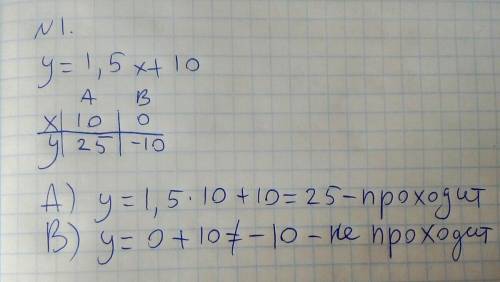 №1.
y=1,5x+10
A B
x | 10 | 0
y | 25 | -10
A) y=1,5·10+10=25-проходит
B) y=0+10≠-10-не проходит